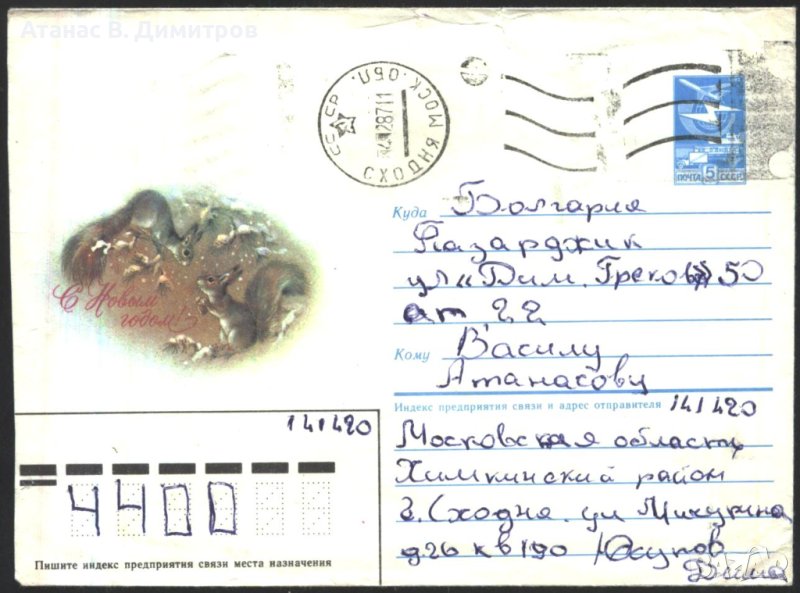 Атанас В. Димитров
СССР
МОСК. ОБЛ.
СХОДНЯ
ПОЧТА 5 К СССР
Куда Болгария
Пазарджик
ул "Дим. Греков" 50
ап 22
С Новым
годом!
Кому Василу
Атанасову
Индекс предприятия связи и адрес отправителя 141420
141420
Московская область
Химкинский район
г. Сходня. ул Мичурина
д 26 кв 190 Юсупов
Дима
4400
Пишите индекс предприятия связи места назначения